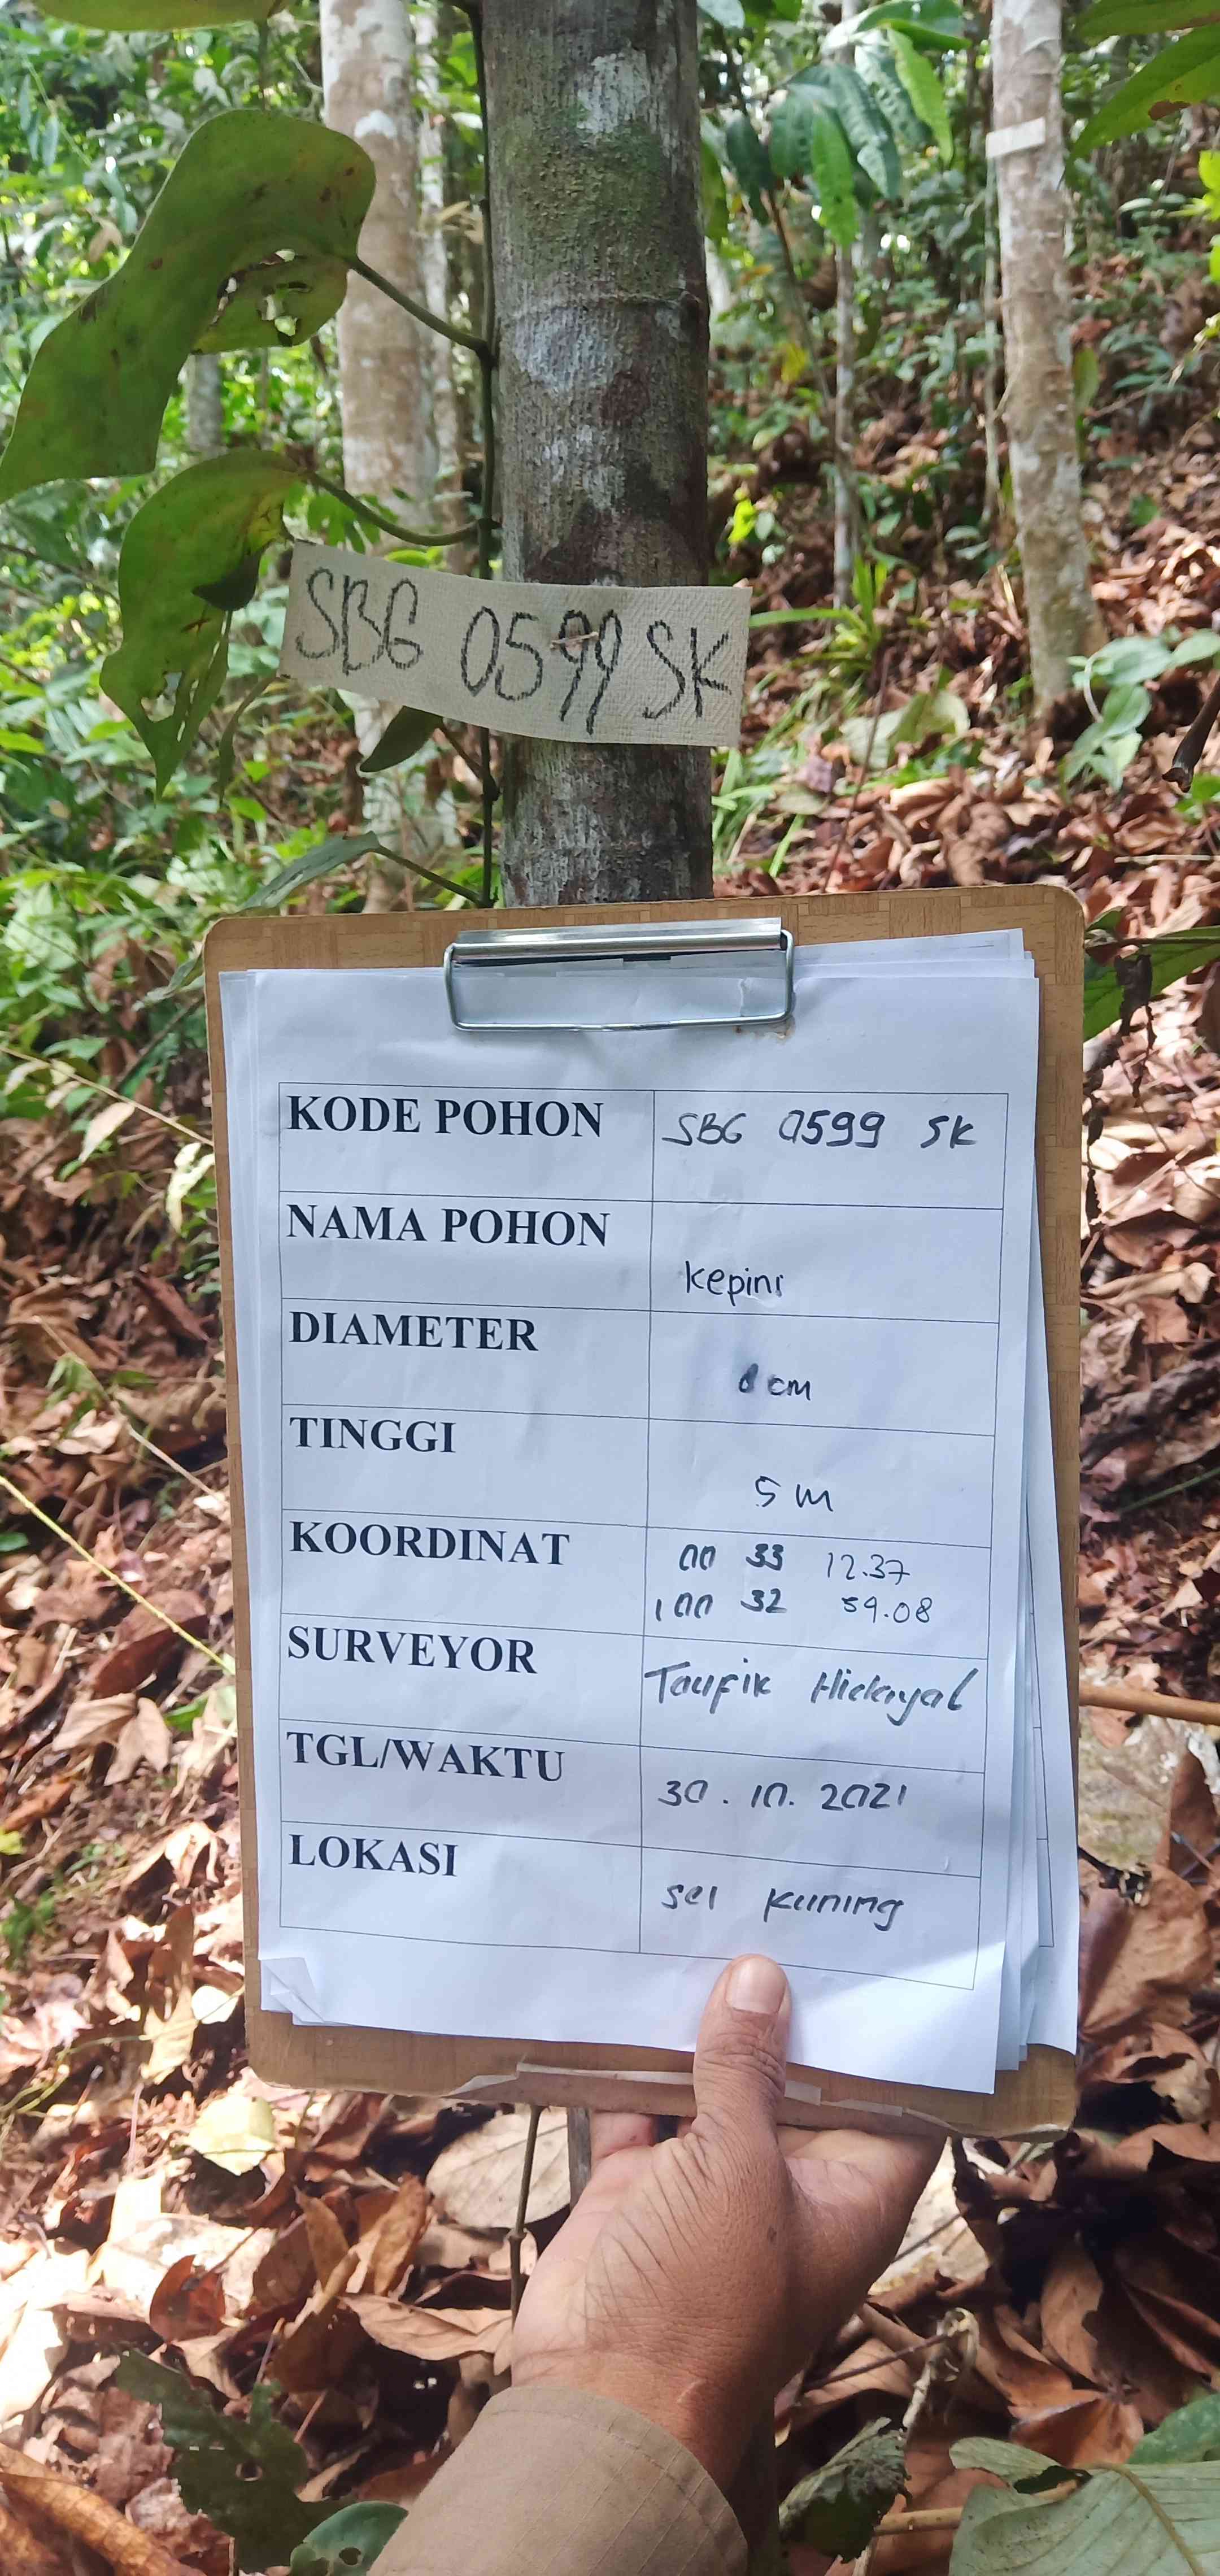 SBG 0599 SK
KODE POHON SBG 0599 SK
NAMA POHON Kepini
DIAMETER 8 cm
TINGGI 5 m
KOORDINAT 00 33 12.37
100 32 59.08
SURVEYOR Taufik Hidayat
TGL/WAKTU 30.10.2021
LOKASI sei Kuning